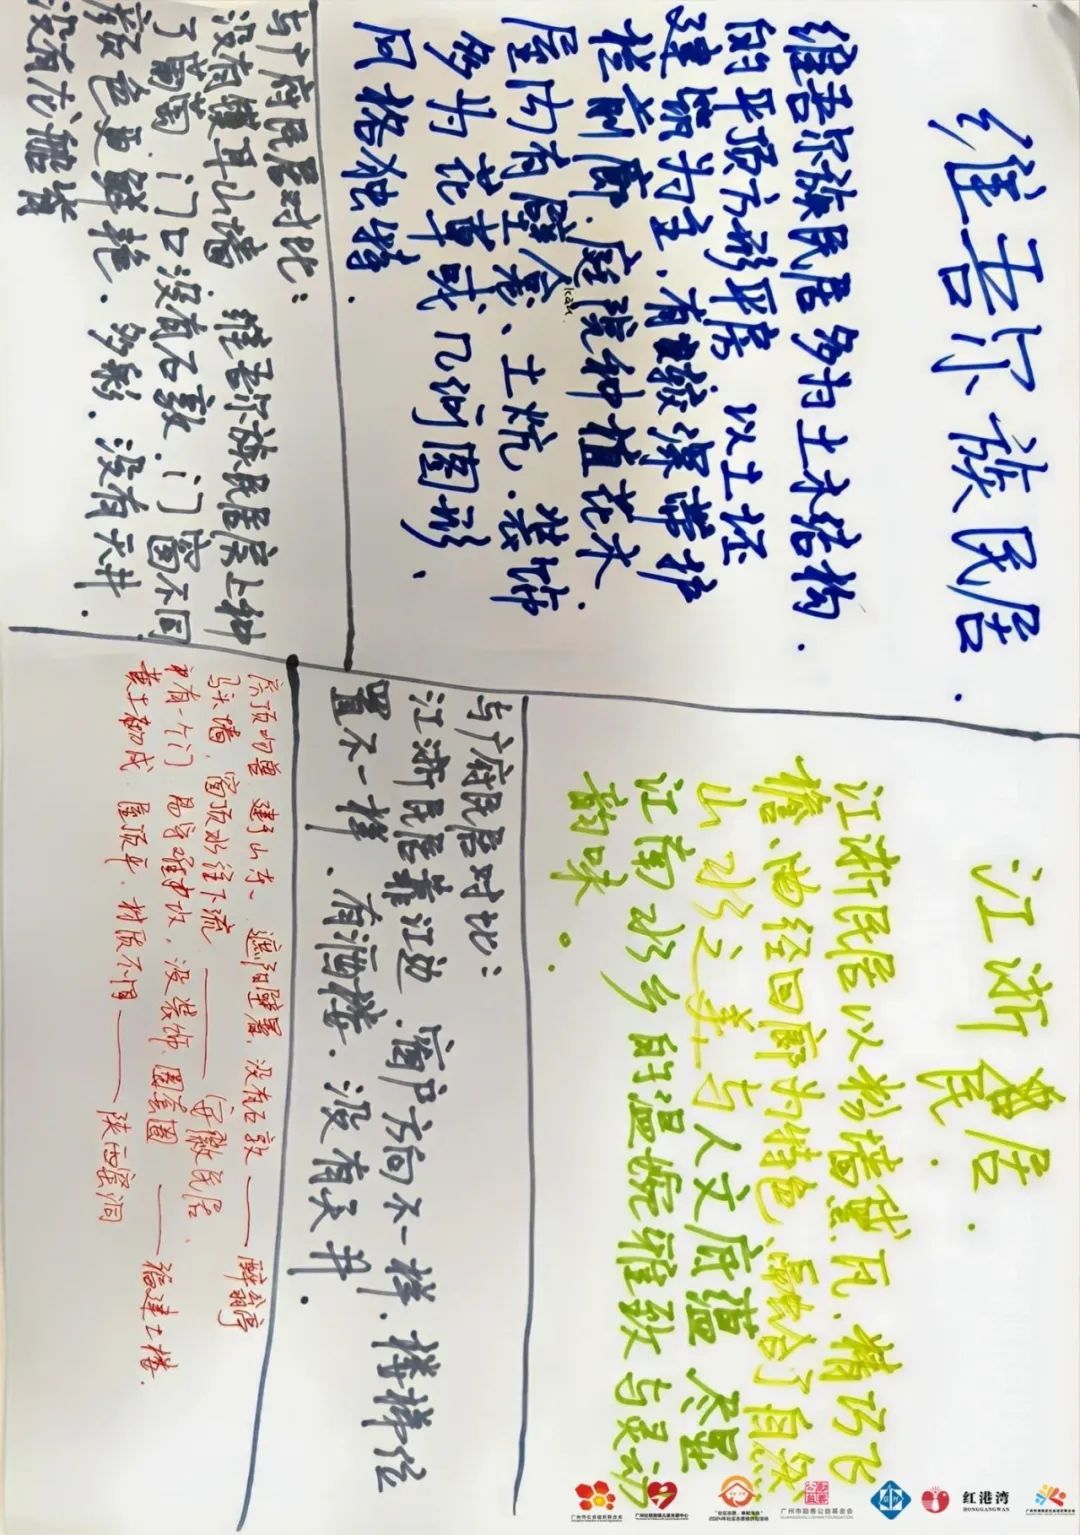 维吾尔族民居.
维吾尔族民居多为土木结构.
的平顶方形平房 以土坯
建筑为主.有
栏前廊.庭院种植花木.
屋内有壁龛、土炕.装饰
kān
多为花草或几何图形.
风格独特.
与广府民居对比:
没有镬耳山墙 维吾尔族民居房上种
了葡萄.门口没有石敦.门窗不同
颜色更鲜艳.多彩.没有天井.
没有龙船脊
江浙民居.
江浙民居以粉墙黛瓦、精巧飞
檐、曲经回廊为特色.融合了自然
山水之美与人文底蕴 尽显
江南水乡的温婉雅致与灵动
韵味。
与广府民居对比:
江浙民居靠江边.窗户方向不一样.楼梯位
置不一样.有酒楼.没有天井.
建于山东、遮阳 没有石敦——醉翁亭
马头墙.窗顶水往下流——安徽民居.
有一个门 易守难攻,没装饰、围 ——福建土楼.
黄土 成 屋顶平.材质不同——陕西窑洞
红港湾
HONGGANGWAN